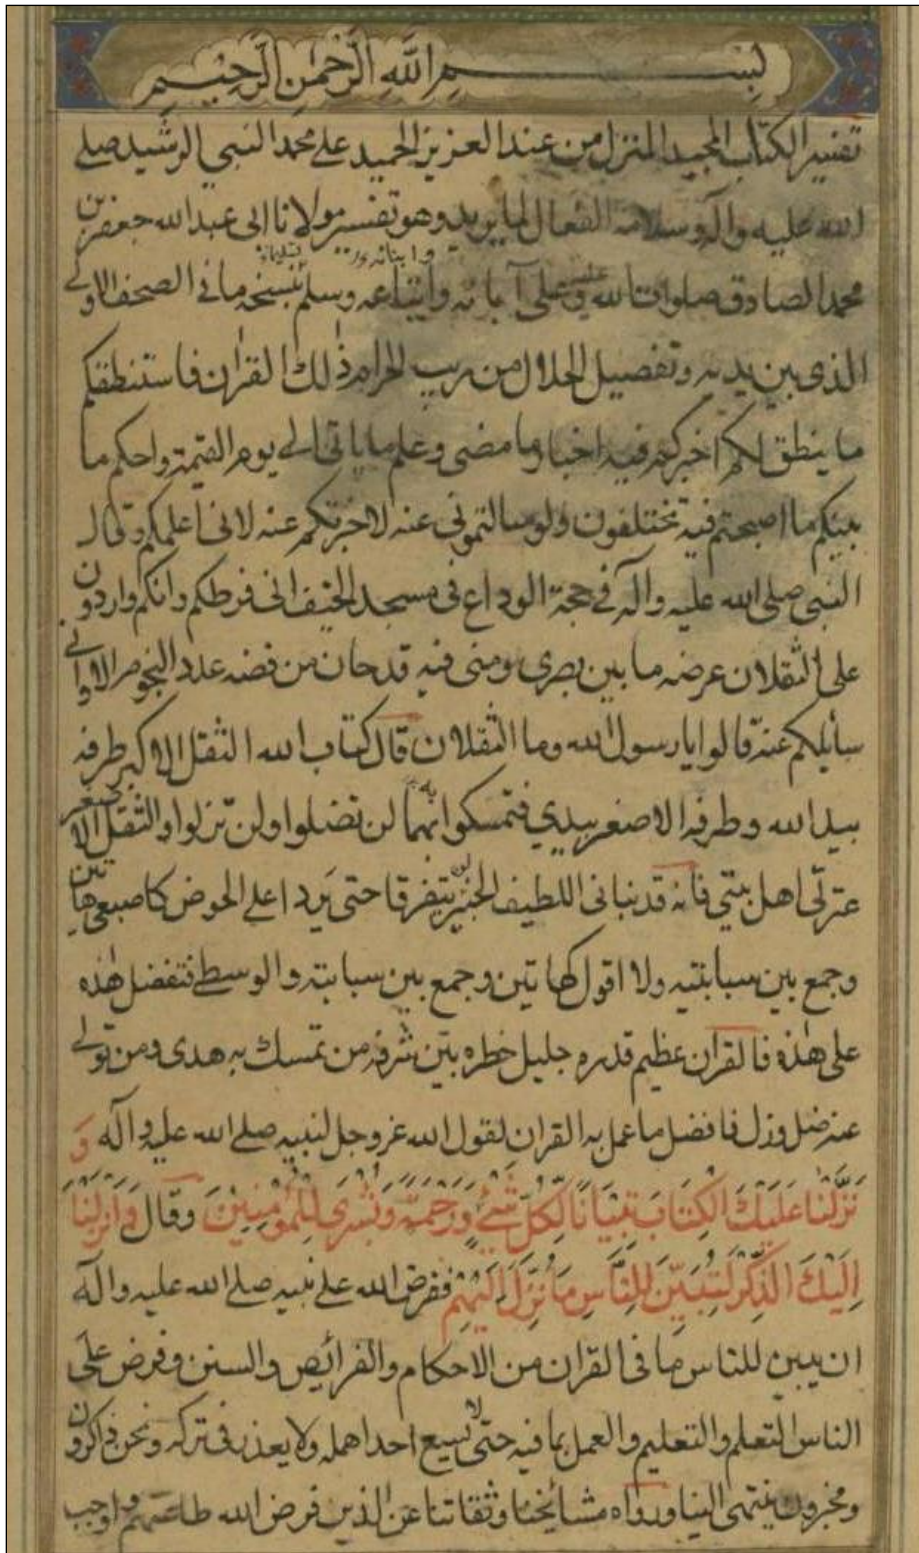 بسم الله الرحمن الرحيم
تفسير الكتاب المجيد المنزل من عند العزيز الحميد على محمد النبي الرشيد صلى
الله عليه وآله وسلامه الفعال لما يريد وهو تفسير مولانا ابى عبدالله جعفر بن
محمد الصادق صلوات الله عليه وعلى آبائه وابنائه واتباعه وسلم بنسخة ما في الصحف الاولى
الذى بين يديه وتفصيل الحلال من ريب الحرام ذلك القران فاستنطقكم
ما ينطق لكم اخبركم فيه اخبار ما مضى وعلم ما ياتى الى يوم القيمة واحكم ما
بينكم ما اصبحتم فيه تختلفون ولو سالتمونى عنه لاخبرتكم عنه لانى اعلمكم وقال
النبى صلى الله عليه وآله فى حجة الوداع فى مسجد الخيف انى فرطكم وانكم واردون
على الثقلان عرضه ما بين بصرى ومنى فيه قدحان من فضه عدد النجوم الا وانى
سايلكم عنه قالوا يا رسول الله وما الثقلان قال كتاب الله الثقل الاكبر طرفه
بيد الله وطرفه الاصغر بيدي فتمسكوا بهما لن تضلوا ولن تزلوا والثقل الاصغر
عترتى اهل بيتي فانه قد نبانى اللطيف الخبير لن يتفرقا حتى يردا على الحوض كاصبعى هاتين
وجمع بين سبابتيه ولا اقول كهاتين وجمع بين سبابته والوسطى فتفضل هذه
على هذه فالقران عظيم قدره جليل خطره بيّن شرفه من تمسك به هدى ومن تولى
عنه ضل وزل فافضل ما عمل به القران لقول الله عز وجل لنبيه صلى الله عليه وآله وَ
نَزَّلْنَا عَلَيْكَ الْكِتَابَ تِبْيَانًا لِكُلِّ شَيْءٍ وَرَحْمَةً وَبُشْرَى لِلْمُؤْمِنِيْنَ وقال وَاَنْزَلْنَا
اِلَيْكَ الذِّكْرَ لِتُبَيِّنَ لِلنَّاسِ مَا نُزِّلَ اِلَيْهِمْ ففرض الله على نبيه صلى الله عليه وآله
ان يبين للناس ما فى القران من الاحكام والفرائض والسنن وفرض على
الناس التعلم والتعليم والعمل بما فيه حتى لا يسع احدا همله ولا يعذر فى تركه ونحن ذاكرون
ومخبرون ينتهى الينا ورواه مشائخنا وثقاتنا عن الذين فرض الله طاعتهم واوجب